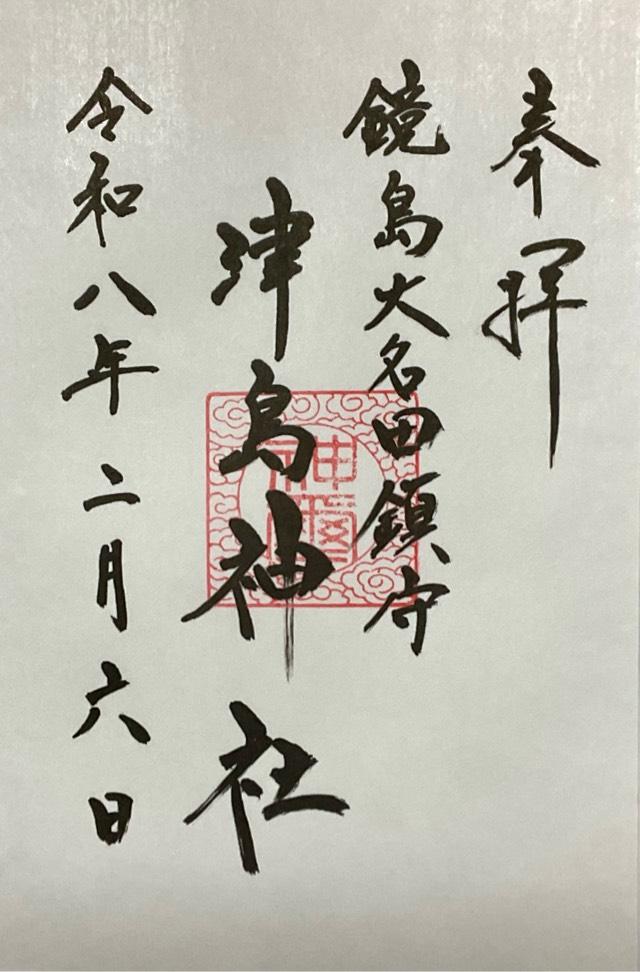 奉拝
鏡島大名田鎮守
津島神社
令和八年二月六日
神璽